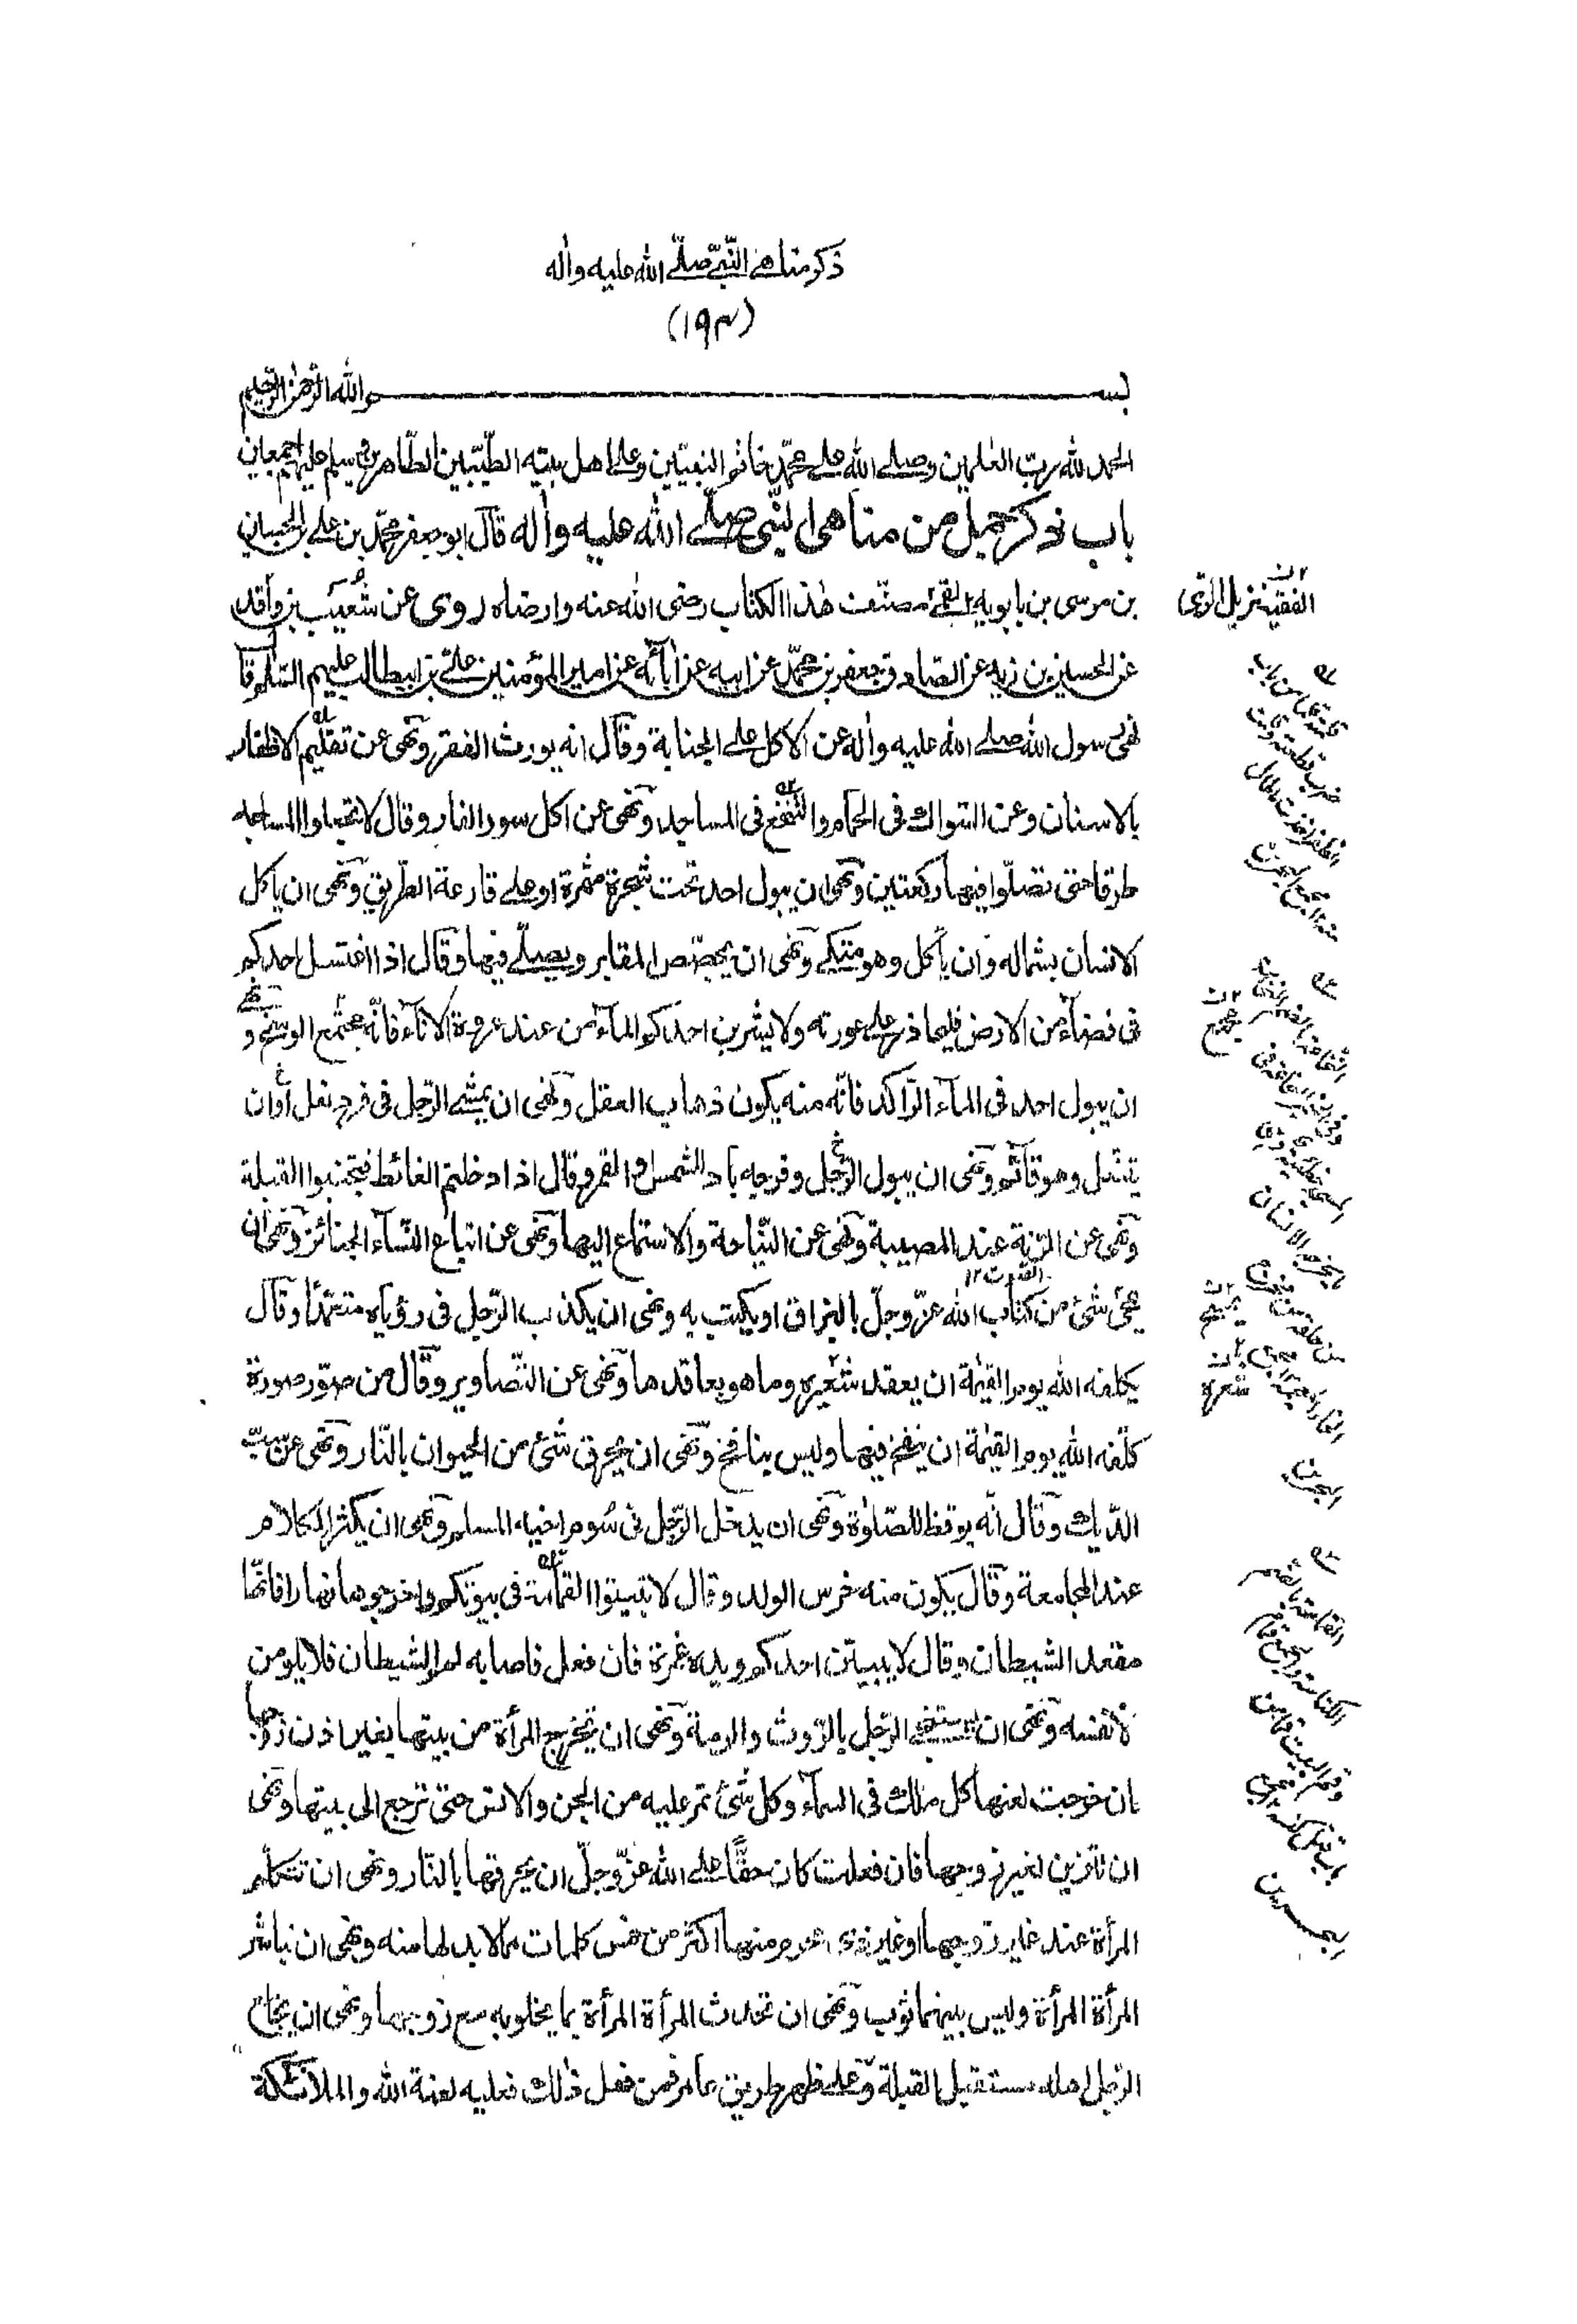 ذكر مناهي النّبيّ صلّى الله عليه واٰله
(١٩٣)
بسم الله الرّحمٰن الرّحيم
الحمد لله ربّ العٰلمين وصلى الله على محمّد خاتم النبيّين وعلى اهل بيته الطّيّبين الطّاهرين وسلم عليهم اجمعين
باب ذكر جمل من مناهى النّبى صلّى الله عليه واٰله قال ابو جعفر محمّد بن على بن الحسين
بن موسى بن بابويه القمّى مصنّف هٰذا الكتاب رضى الله عنه وارضاه روى عن شُعيب بن واقد
عن الحسين بن زيد عن الصّادق جعفر بن محمّد عن ابيه عن اٰبائه عن امير المؤمنين علىّ بن ابيطالب عليهم السّلام قال
نهى رسول الله صلى الله عليه واٰله عن الاكل على الجنابة وقال انه يورث الفقر ونهى عن تقليم الاظفار
بالاسنان وعن السّواك فى الحمّام والتّنخّع فى المساجد ونهى عن اكل سور الفار وقال لا تجعلوا المساجد
طرقا حتى تصلّوا فيها ركعتين ونهى ان يبول احد تحت شجرة مثمرة او على قارعة الطّريق ونهى ان ياكل
الانسان بشماله وان ياكل وهو متكى ونهى ان يجصّص المقابر ويصلّى فيها وقال اذا اغتسل احدكم
فى فضاء من الارض فليحاذر على عورته ولا يشربن احدكم الماء من عند عروة الاناء فانّه مجتمع الوسخ ونهى
ان يبول احد فى الماء الرّاكد فانّه منه يكون ذهاب العقل ونهى ان يمشى الرّجل فى فرد نعل او ان
يتنعّل وهو قائم ونهى ان يبول الرّجل وفرجه باد للشمس او القمر وقال اذا دخلتم الغائط فتجنبوا القبلة
ونهى عن الرّنة عند المصيبة ونهى عن النّياحة والاستماع اليها ونهى عن اتباع النّساء الجنائز ونهى ان
يمحى شئ من كتاب الله عزّ وجلّ بالبزاق او يكتب به ونهى ان يكذب الرّجل فى رؤياه متعمّدا وقال
يكلفه الله يوم القيٰمة ان يعقد شعيره وما هو بعاقدها ونهى عن التّصاوير وقال من صوّر صورة
كلّفه الله يوم القيٰمة ان ينفخ فيها وليس بنافخ ونهى ان يحرق شئ من الحيوان بالنّار ونهى عن سبّ
الدّيك وقال انّه يوقظ للصّلوٰة ونهى ان يدخل الرّجل فى سُوم اخيه المسلم ونهى ان يكثر الكلام
عند المجامعة وقال يكون منه خرس الولد وقال لا تبيتوا القمامة فى بيوتكم واخرجوها نهارا فانّها
مقعد الشيطان وقال لا يبيتن احدكم ويده غمرة فان فعل فاصابه لمم الشيطان فلا يلومن
الا نفسه ونهى ان يستنجى الرّجل بالرّوث والرمة ونهى ان تخرج المرأة من بيتها بغير اذن زوجها
فان خرجت لعنها كل ملك فى السماء وكل شئ تمر عليه من الجن والانس حتى ترجع الى بيتها ونهى
ان تتزين لغير زوجها فان فعلت كان حقًّا على الله عزّ وجلّ ان يحرقها بالنّار ونهى ان تتكلّم
المرأة عند غير زوجها او غير ذى محرم منها اكثر من خمس كلمات مما لا بد لها منه ونهى ان تباشر
المرأة المرأة وليس بينهما ثوب ونهى ان تحدث المرأة المرأة بما يخلو به مع زوجها ونهى ان يجامع
الرّجل اهله مستقبل القبلة وعلى ظهر طريق عامر فمن فعل ذٰلك فعليه لعنة الله والملائكة
الفقيه نزيل الرّى